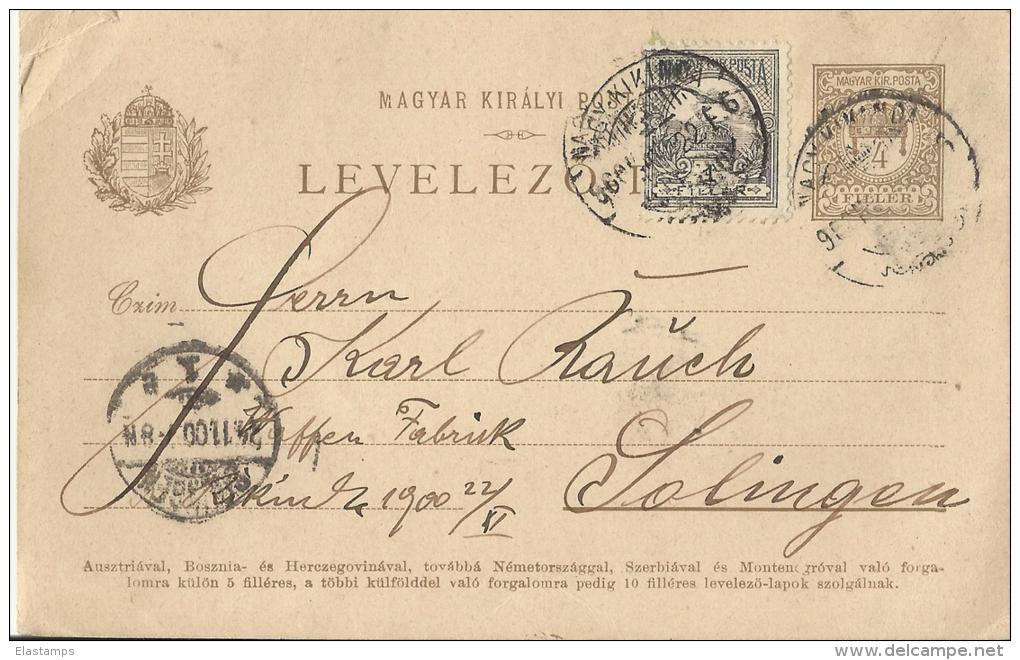 MAGYAR KIRÁLYI PO
LEVELEZŐ
MAGYAR KIR. POSTA
4
FILLÉR
1
FILLÉR
NAGY-KIKINDA
Czim
Herrn
Karl Rauch
Waffen Fabrik
1900 22/XI
Solingen
11.00
Ausztriával, Bosznia- és Herczegovinával, továbbá Németországgal, Szerbiával és Montenegróval való forga-
lomra külön 5 filléres, a többi külfölddel való forgalomra pedig 10 filléres levelező-lapok szolgálnak.
Elastamps
delcampe.net